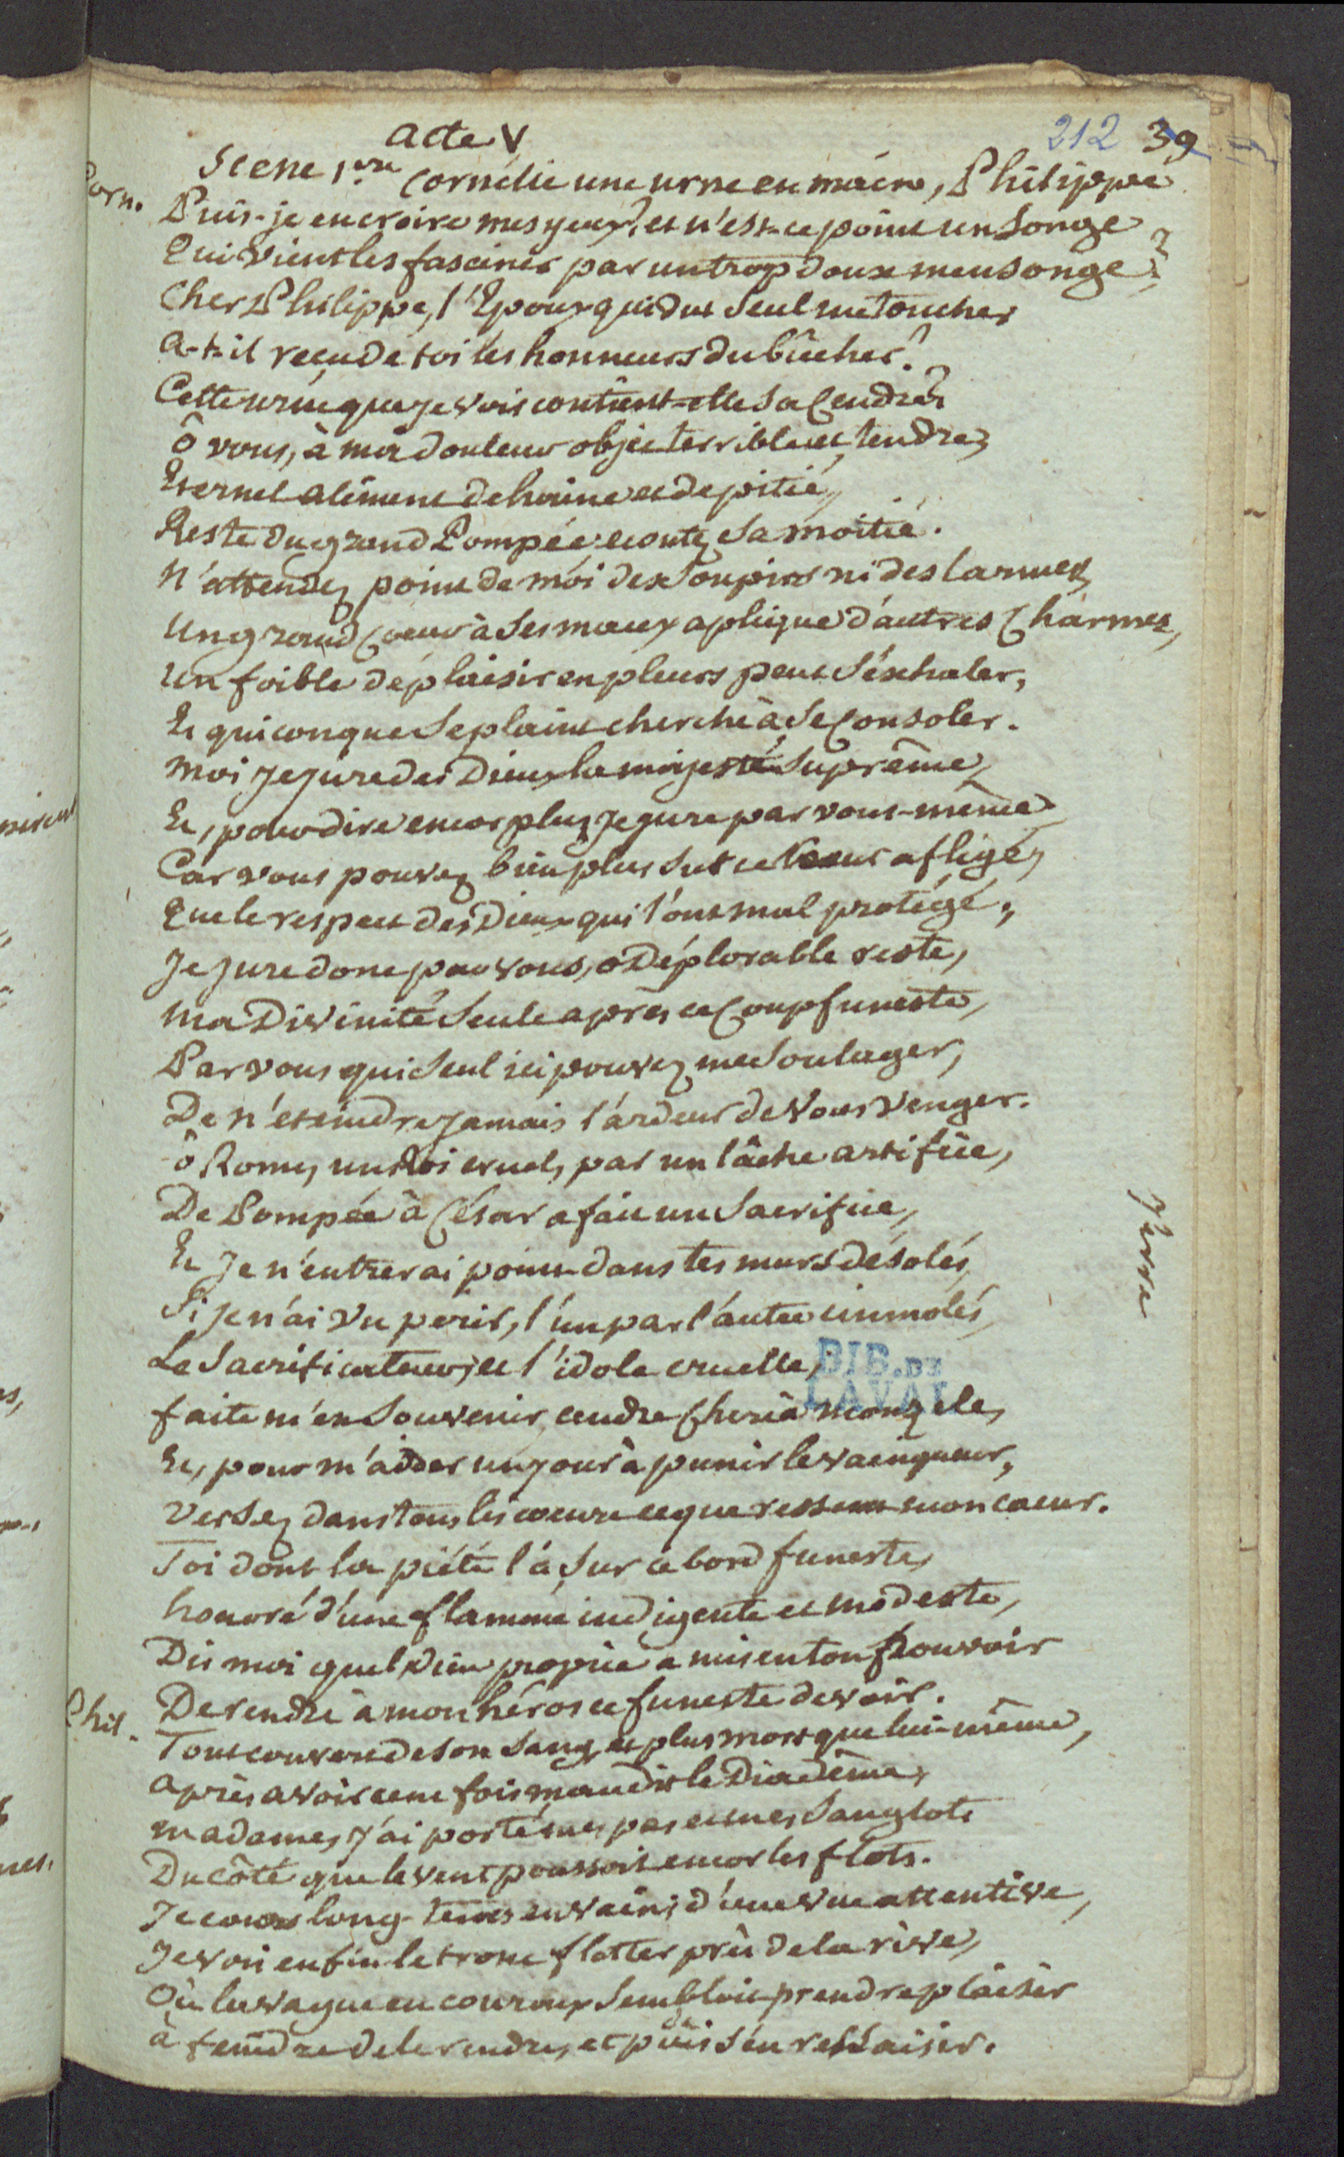 212 39
acte V
Scene 1ere Cornélie une urne en main, Philippe
Corn. Puis-je en croire mes yeux, et n'est-ce point un Songe
Qui vient les fasciner par un trop doux mensonge?
Cher Philippe, l'Epoux qui dut Seul me toucher
a-t-il reçu de toi les honneurs du bûcher?
Cette urne que je vois contient-elle Sa Cendre?
Ô vous, à ma douleur objet terrible et tendre,
Eternel aliment de haine et de pitié,
Reste du grand Pompée écoutez Sa moitié.
N'attendez point de moi des Soupirs ni des larmes,
Un grand Coeur à Ses maux aplique d'autres Charmes,
Un foible déplaisir en pleurs peut S'exhaler,
Et quiconque Se plaint cherche à Se Consoler.
Moi je jure des Dieux la majesté Suprême,
Et, pour dire encor plus, je jure par vous-même
Car vous pouvez bien plus Sur ce Coeur afligé,
Que le respect des Dieux qui l'ont mal protégé;
Je jure donc par vous, o Déplorable reste,
Ma Divinité Seule après ce Coup funeste,
Par vous qui Seul ici pouvez me Soulager,
De n'éteindre jamais l'ardeur de vous venger.
ô Rome, un Roi cruel, par un lâche artifice,
De Pompée à César a fait un Sacrifice,
Et je n'entrerai point dans tes murs désolés,
Si je n'ai vu périr, l'un par l'autre immolés,
Le Sacrificateur, et l'idole cruelle,
faite m'en Souvenir, cendre Chere à mon zele,
Et, pour m'aider un jour à punir le vainqueur,
Versez dans tous les coeurs ce que ressent mon coeur.
Toi dont la piété l'a Sur ce bord funeste,
honoré d'une flamme indigente et modeste,
Dis moi quel Dieu propice a mis en ton pouvoir
De rendre à mon héros ce funeste devoir.
Phil. Tout couvert de Son Sang, et plus mort que lui-même,
après avoir cent fois maudit le Diadême,
madame, j'ai porté mes pas et mes Sanglots
Du côté que le vent poussoit encor les flots.
Je cours long-tems en vain; d'une vue attentive,
Je vois enfin le tronc flotter près de la rive,
Où la vague en couroux Sembloit prendre plaisir
à feindre de le rendre, et puis S'en ressaisir.
BIB. DE
LAVAL